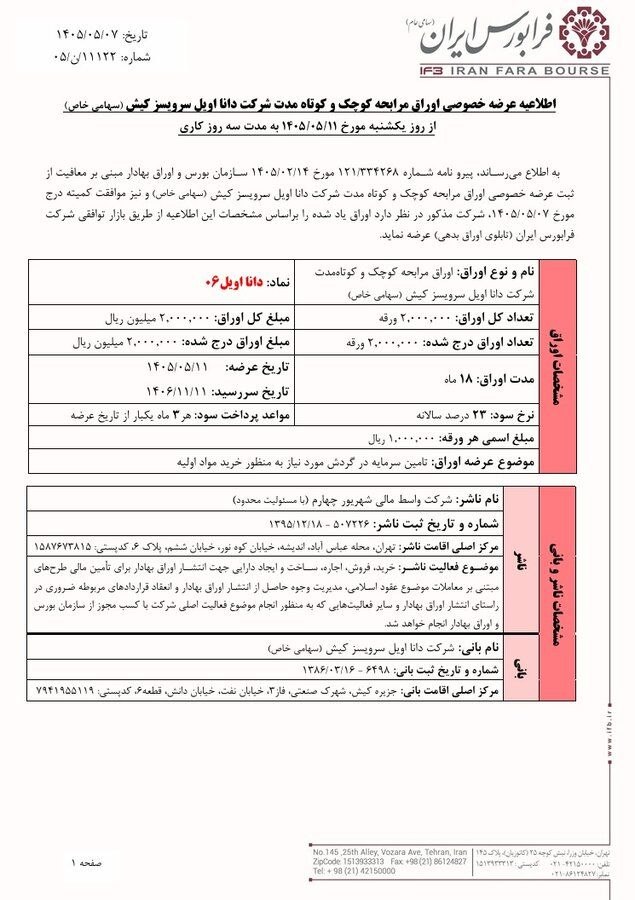 فرابورس ایران (سهامی عام)
IFB IRAN FARA BOURSE
تاریخ: ۱۴۰۵/۰۵/۰۷
شماره: ۱۱۱۲۲/ن/۰۵
اطلاعیه عرضه خصوصی اوراق مرابحه کوچک و کوتاه مدت شرکت دانا اویل سرویسز کیش (سهامی خاص)
از روز یکشنبه مورخ ۱۴۰۵/۰۵/۱۱ به مدت سه روز کاری
به اطلاع می‌رساند، پیرو نامه شماره ۱۲۱/۳۳۴۲۶۸ مورخ ۱۴۰۵/۰۲/۱۴ سازمان بورس و اوراق بهادار مبنی بر معافیت از
ثبت عرضه خصوصی اوراق مرابحه کوچک و کوتاه مدت شرکت دانا اویل سرویسز کیش (سهامی خاص) و نیز موافقت کمیته درج
مورخ ۱۴۰۵/۰۵/۰۷، شرکت مذکور در نظر دارد اوراق یاد شده را براساس مشخصات این اطلاعیه از طریق بازار توافقی شرکت
فرابورس ایران (تابلوی اوراق بدهی) عرضه نماید.
مشخصات اوراق
نام و نوع اوراق: اوراق مرابحه کوچک و کوتاه‌مدت
شرکت دانا اویل سرویسز کیش (سهامی خاص)
نماد: دانا اویل۰۶
تعداد کل اوراق: ۲,۰۰۰,۰۰۰ ورقه
مبلغ کل اوراق: ۲,۰۰۰,۰۰۰ میلیون ریال
تعداد اوراق درج شده: ۲,۰۰۰,۰۰۰ ورقه
مبلغ اوراق درج شده: ۲,۰۰۰,۰۰۰ میلیون ریال
مدت اوراق: ۱۸ ماه
تاریخ عرضه: ۱۴۰۵/۰۵/۱۱
تاریخ سررسید: ۱۴۰۶/۱۱/۱۱
نرخ سود: ۲۳ درصد سالانه
مواعد پرداخت سود: هر ۳ ماه یکبار از تاریخ عرضه
مبلغ اسمی هر ورقه: ۱,۰۰۰,۰۰۰ ریال
موضوع عرضه اوراق: تامین سرمایه در گردش مورد نیاز به منظور خرید مواد اولیه
مشخصات ناشر و بانی
ناشر
نام ناشر: شرکت واسط مالی شهریور چهارم (با مسئولیت محدود)
شماره و تاریخ ثبت ناشر: ۵۰۷۲۲۶ - ۱۳۹۵/۱۲/۱۸
مرکز اصلی اقامت ناشر: تهران، محله عباس آباد، اندیشه، خیابان کوه نور، خیابان ششم، پلاک ۶، کدپستی: ۱۵۸۷۶۷۳۸۱۵
موضوع فعالیت ناشر: خرید، فروش، اجاره، ساخت و ایجاد دارایی جهت انتشار اوراق بهادار برای تأمین مالی طرح‌های
مبتنی بر معاملات موضوع عقود اسلامی، مدیریت وجوه حاصل از انتشار اوراق بهادار و انعقاد قراردادهای مربوطه ضروری در
راستای انتشار اوراق بهادار و سایر فعالیت‌هایی که به منظور انجام موضوع فعالیت اصلی شرکت با کسب مجوز از سازمان بورس
و اوراق بهادار انجام خواهد شد.
بانی
نام بانی: شرکت دانا اویل سرویسز کیش (سهامی خاص)
شماره و تاریخ ثبت بانی: ۶۴۹۸ - ۱۳۸۶/۰۳/۱۶
مرکز اصلی اقامت بانی: جزیره کیش، شهرک صنعتی، فاز۳، خیابان نفت، خیابان دانش، قطعه۶، کدپستی: ۷۹۴۱۹۵۵۱۱۹
www.ifb.ir
تهران، خیابان وزرا، نبش کوچه ۲۵ (کانوریان)، پلاک ۱۴۵
تلفن: ۴۲۱۵۰۰۰۰-۰۲۱ کدپستی: ۱۵۱۳۹۳۳۳۱۳
نمابر: ۸۶۱۲۴۸۲۷-۰۲۱
No.145 ,25th Alley, Vozara Ave, Tehran, Iran
ZipCode: 1513933313 Fax: +98 (21) 86124827
Tel: + 98 (21) 42150000
صفحه ۱